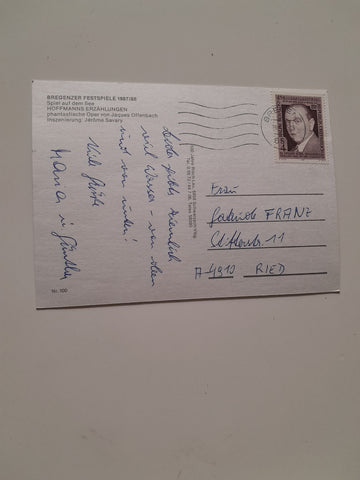 BREGENZER FESTSPIELE 1987/88
Spiel auf dem See
HOFFMANNS ERZÄHLUNGEN
phantastische Oper von Jacques Offenbach
Inszenierung: Jérôme Savary
Leider gibts ziemlich
viel Wasser - von oben
und von unten!
Viele Grüße
Maria u. Günther
Nr. 100
Frau
Gertrude FRANZ
Stifterstr. 11
A-4910 RIED